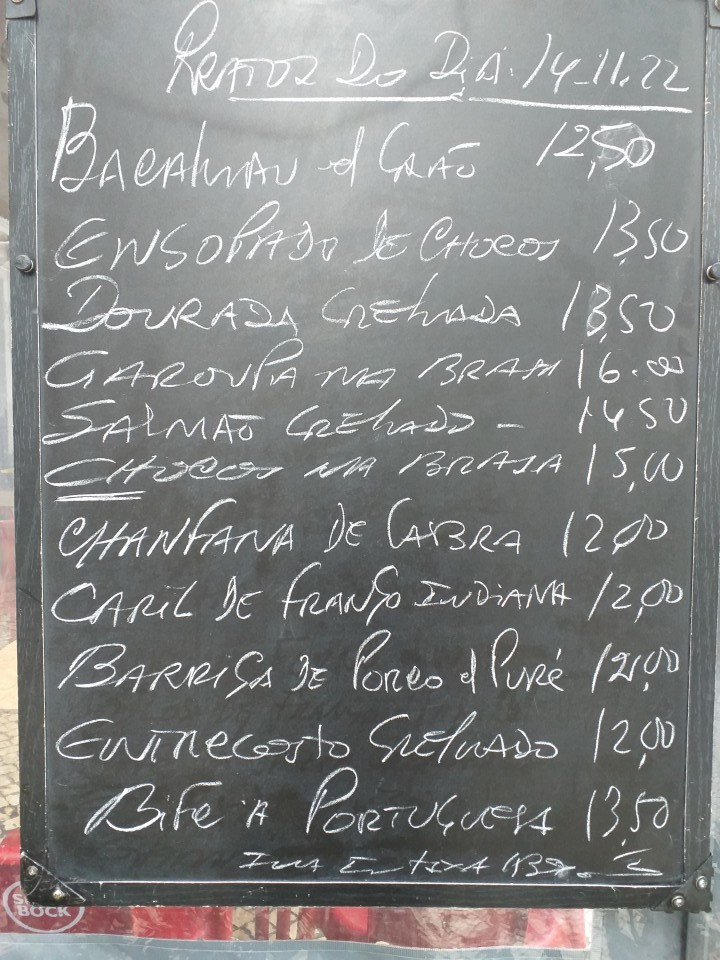 PRATOS DO DIA: 14.11.22
BACALHAU c/ GRÃO 12,50
ENSOPADO DE CHOCOS 13,50
DOURADA GRELHADA 13,50
GAROUPA NA BRASA 16.00
SALMÃO GRELHADO - 14,50
CHOCOS NA BRASA 15,00
CHANFANA DE CABRA 12,00
CARIL DE FRANGO INDIANA 12,00
BARRIGA DE PORCO c/ PURÉ 12,00
ENTRECOSTO GRELHADO 12,00
BIFE À PORTUGUESA 13,50
BOCK